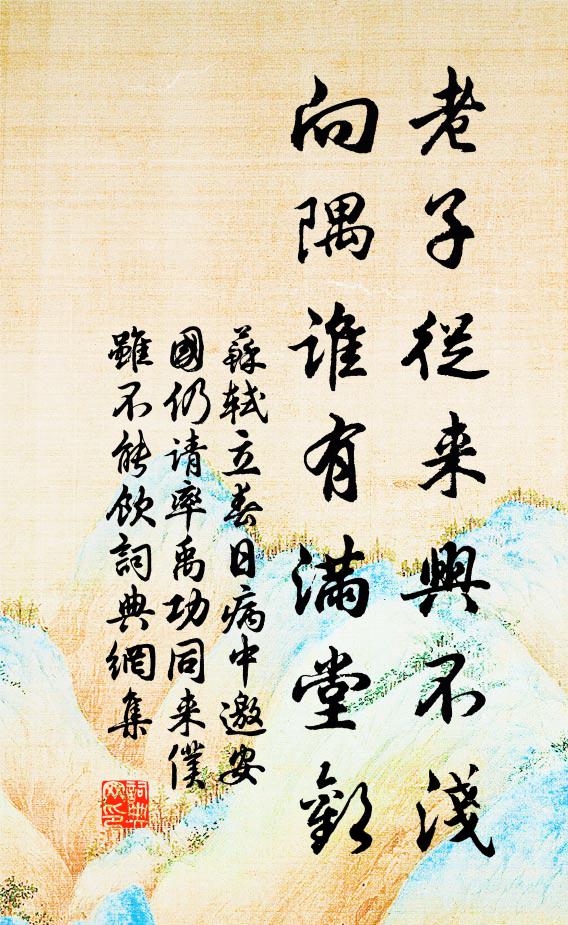 老子從来興不淺
向隅誰有滿堂歡
蘇軾立春日病中邀安
國仍请率禹功同来僕
雖不能飲詞典網集